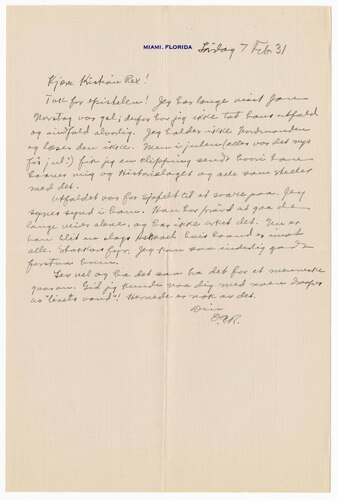 MIAMI, FLORIDA Lördag 7 Feb 31
Kjære Kristian Rex!
Tak for epistelen! Jeg har længe vidst Jon
Norstog var gal; derfor har jeg ikke tat hans utfald
og indfald alvorlig. Jeg holder ikke Nordmanden
og læser den ikke. Men i julen (eller var det nyt
før jul?) fik jeg en clipping sendt hvori han
haaner mig og Historielaget og alle som steller
med det.
Utfaldet var for sjofelt til at svare paa. Jeg
synes synd i ham. Han har prövd at gaa de
lange veier alene og har ikke orket det. Nu er
han blet en slags Ishmael hvis haand er imot
alle. Stakkars fyr. Jeg kan saa inderlig godt
forstaa ham.
Lev vel og ha det saa bra det for et menneske
gaar an. Gid jeg kunde naa dig med noen draaper
av "livets vand"! Hernede er nok av det.
Din
O.E.R.